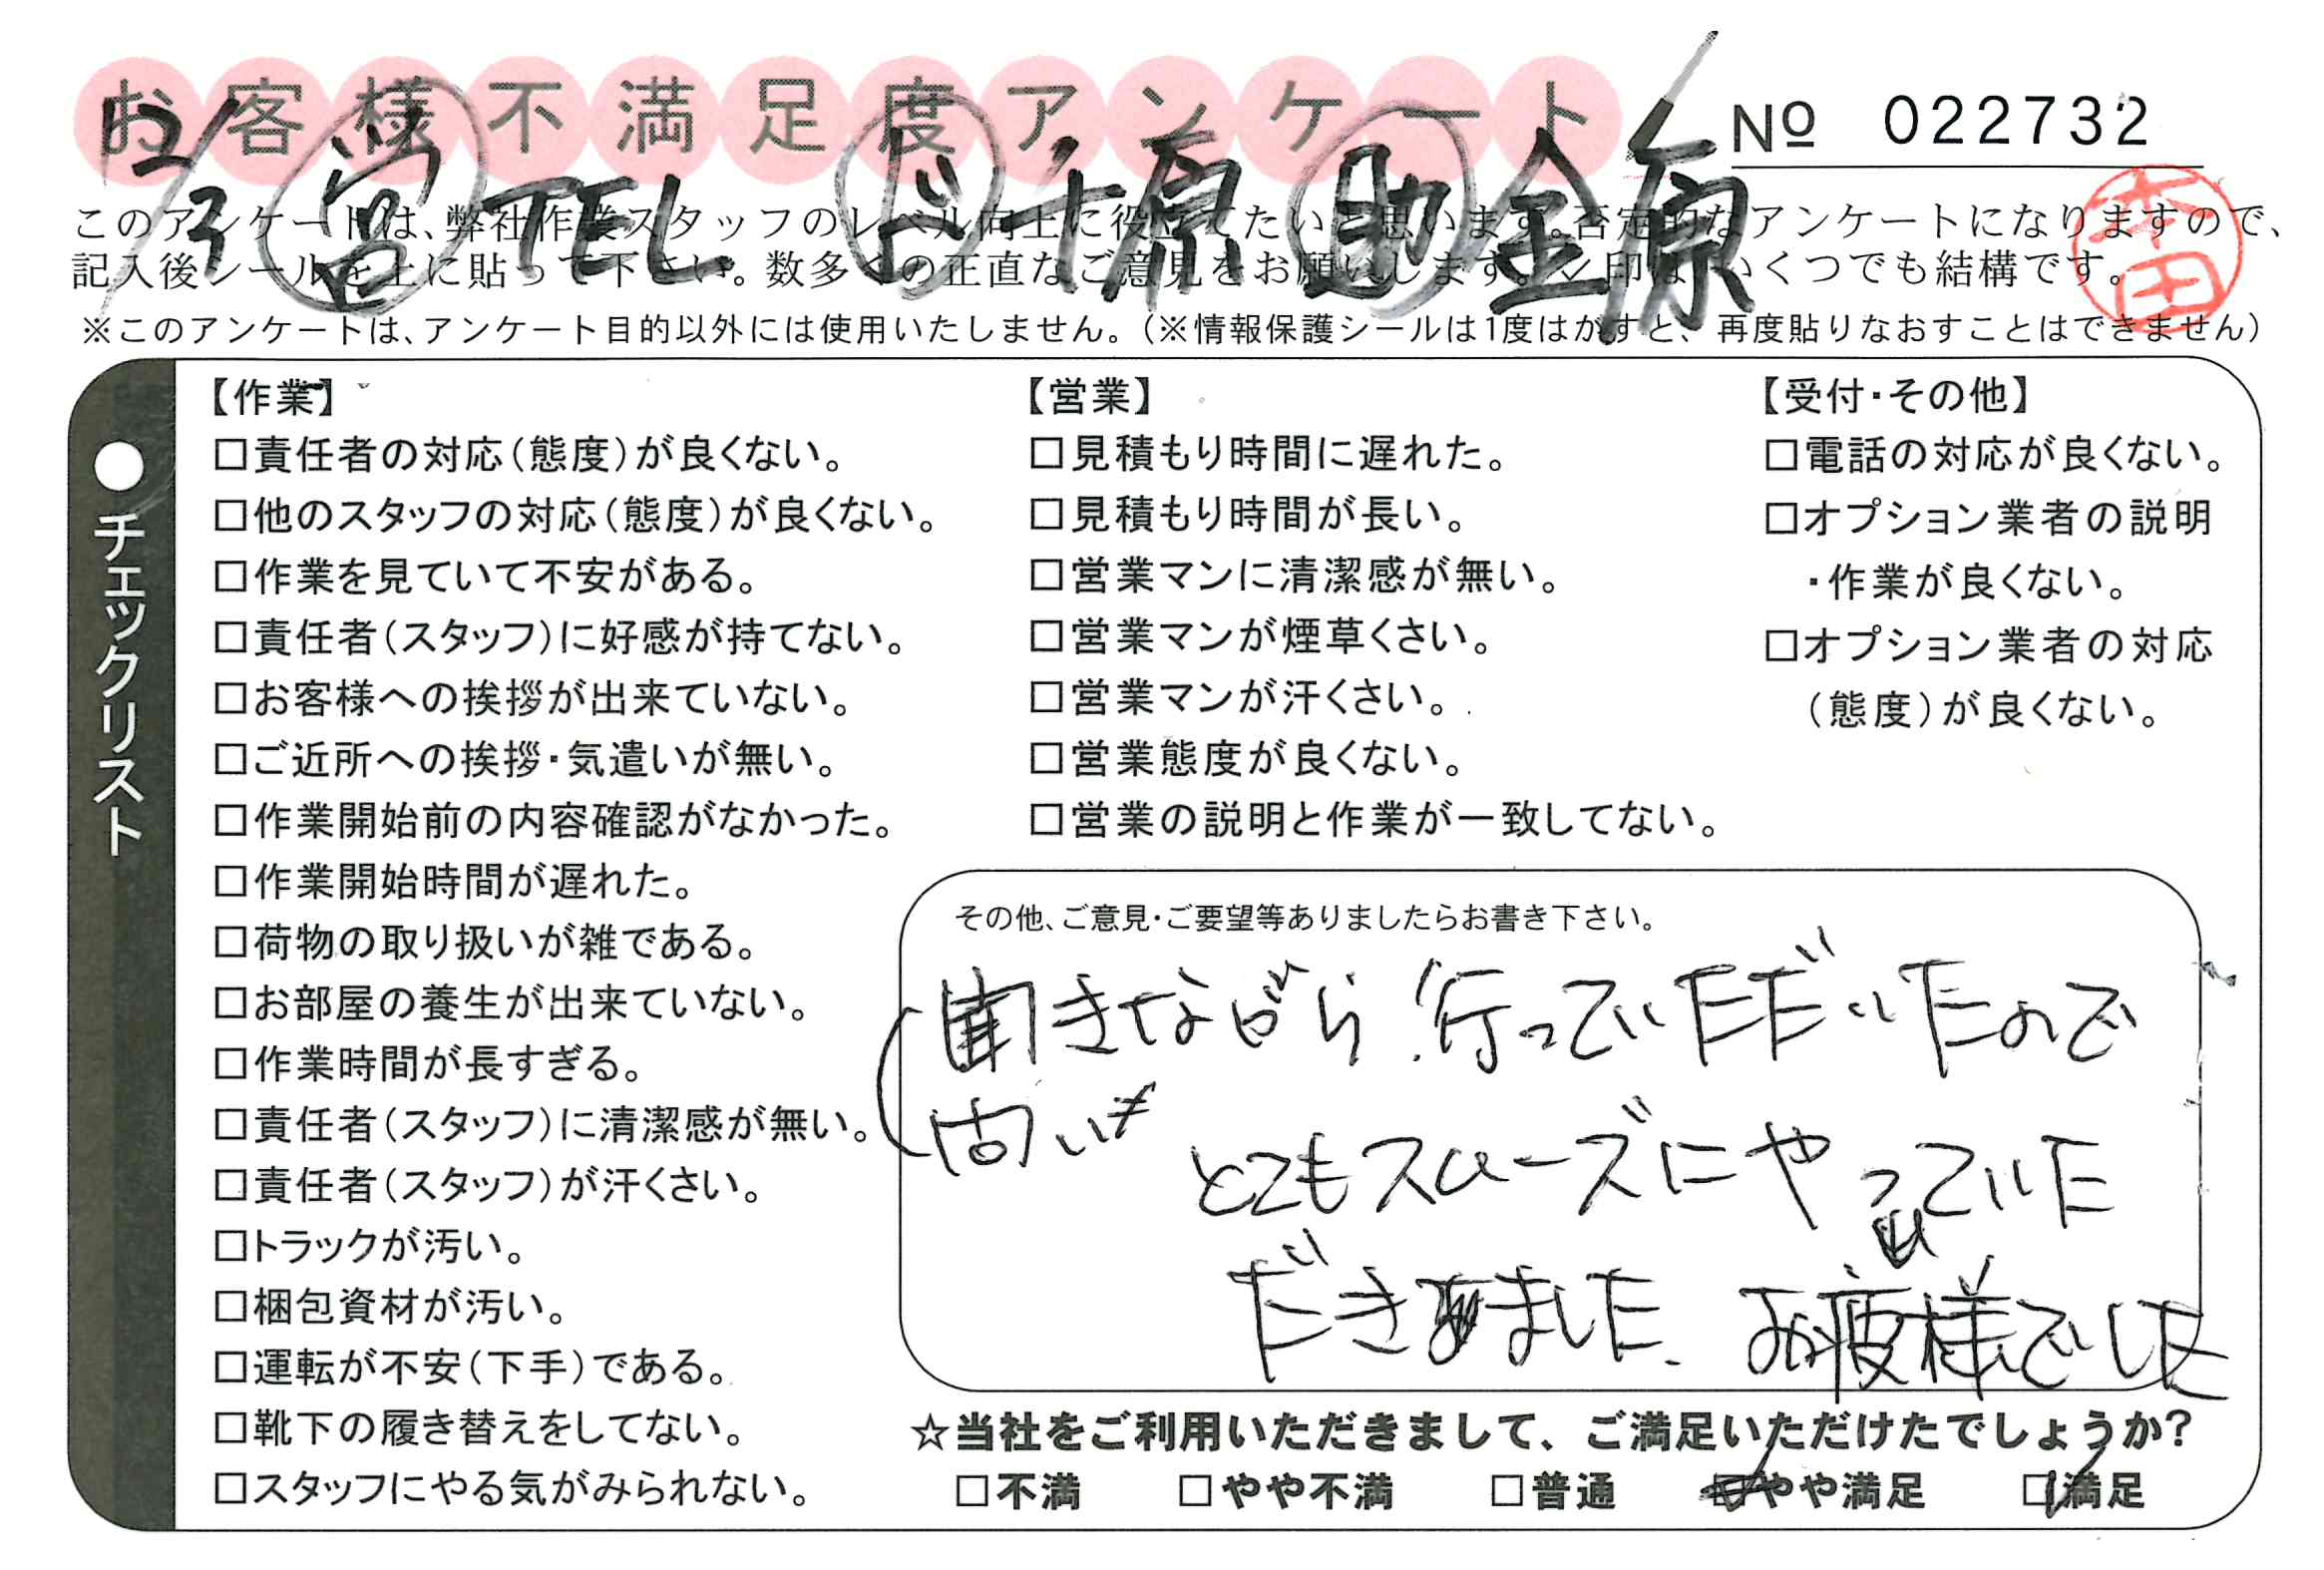 お客様不満足度アンケート
№ 022732
12/3 営 TEL ド 千原 助 金原
本田
このアンケートは、弊社作業スタッフのレベル向上に役立てたいと思います。否定的なアンケートになりますので、
記入後シールを上に貼って下さい。数多くの正直なご意見をお願いします。✓印は、いくつでも結構です。
※このアンケートは、アンケート目的以外には使用いたしません。(※情報保護シールは1度はがすと、再度貼りなおすことはできません)
●チェックリスト
【作業】
□責任者の対応(態度)が良くない。
□他のスタッフの対応(態度)が良くない。
□作業を見ていて不安がある。
□責任者(スタッフ)に好感が持てない。
□お客様への挨拶が出来ていない。
□ご近所への挨拶・気遣いが無い。
□作業開始前の内容確認がなかった。
□作業開始時間が遅れた。
□荷物の取り扱いが雑である。
□お部屋の養生が出来ていない。
□作業時間が長すぎる。
□責任者(スタッフ)に清潔感が無い。
□責任者(スタッフ)が汗くさい。
□トラックが汚い。
□梱包資材が汚い。
□運転が不安(下手)である。
□靴下の履き替えをしてない。
□スタッフにやる気がみられない。
【営業】
□見積もり時間に遅れた。
□見積もり時間が長い。
□営業マンに清潔感が無い。
□営業マンが煙草くさい。
□営業マンが汗くさい。
□営業態度が良くない。
□営業の説明と作業が一致してない。
【受付・その他】
□電話の対応が良くない。
□オプション業者の説明
・作業が良くない。
□オプション業者の対応
(態度)が良くない。
その他、ご意見・ご要望等ありましたらお書き下さい。
聞きながら行っていただいたので
問い
とてもスムーズにやっていた
だきました。お疲様でした
☆当社をご利用いただきまして、ご満足いただけたでしょうか?
□不満 □やや不満 □普通 □やや満足 ☑満足